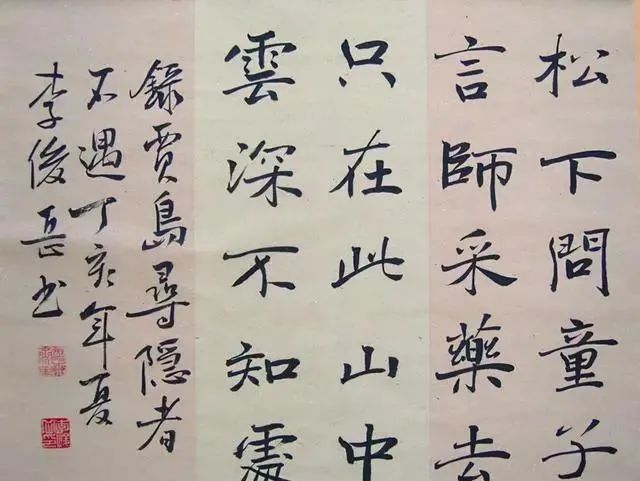 松下問童子
言師采藥去
只在此山中
雲深不知處
錄賈島尋隱者
不遇丁亥年夏
李俊喜书